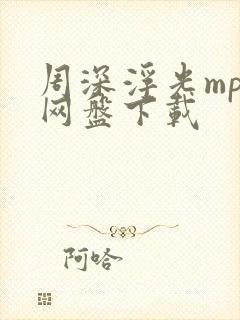 周深浮光mp
网盘下载
阿哈